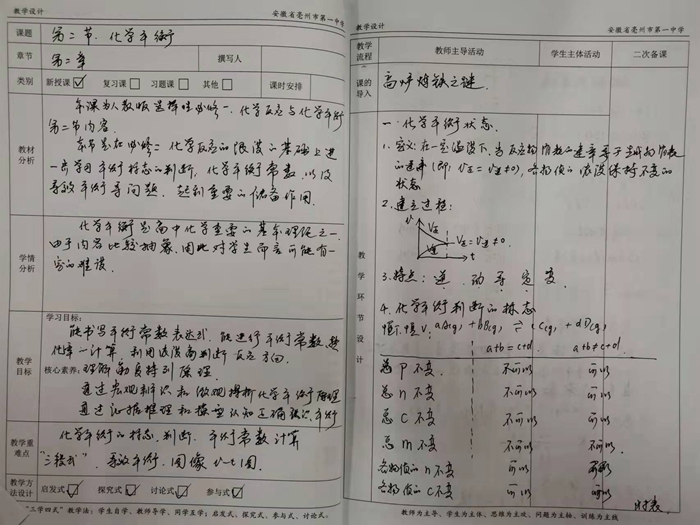 教学设计
安徽省亳州市第一中学
课题
第二节、化学平衡
章节
第二章
撰写人
类别
新授课
复习课
习题课
其他
课时安排
教材
分析
本课为人教版选择性必修一、化学反应与化学平衡
第二节内容。
本节是在必修二化学反应的限度的基础上进
一步学习平衡标志的判断,化学平衡常数,以及
等效平衡等问题,起到重要的储备作用。
学情
分析
化学平衡是高中化学重要的基本理论之一
由于内容比较抽象,因此对学生而言可能有一
定的难度。
教学
目标
学习目标:
能书写平衡常数表达式,能进行平衡常数、转
化率计算,利用浓度商判断反应方向。
理解勒夏特列原理
核心素养:
通过宏观辨识和微观探析化学平衡原理
通过证据推理和模型认知正确认识平衡
教学重
难点
化学平衡的标志,判断,平衡常数计算
“三段式”,等效平衡,图像 v-t图.
教学方
法设计
启发式
探究式
讨论式
参与式
“三学四式”教学法:学生自学、教师导学、同学互学;启发式、探究式、参与式、讨论式。
教学设计
安徽省亳州市第一中学
教学
流程
教师主导活动
学生主体活动
二次备课
课的
导入
高炉炼铁之谜.
教
学
环
节
设
计
一、化学平衡状态.
1、定义:在一定温度下,当反应物的速率等于生成物
的速率(即:V正=V逆≠0),各物质的浓度保持不变的
状态
2、建立过程:
V
V正
V正=V逆≠0.
V逆
t
3、特点:逆、动等定变.
4、化学平衡判断的标志
恒T.恒V:aA(g)+bB(g)⇌cC(g)+dD(g)
a+b=c+d.
a+b≠c+d.
总P不变
不可以
可以
总n不变
不可以
可以
总C不变
不可以
可以
总m不变
不可以
不可以.
各物质的n不变
可以
可以
各物质的C不变
可以
可以
教师为主导、学生为主体、思维为主攻、问题为主轴、训练为主线